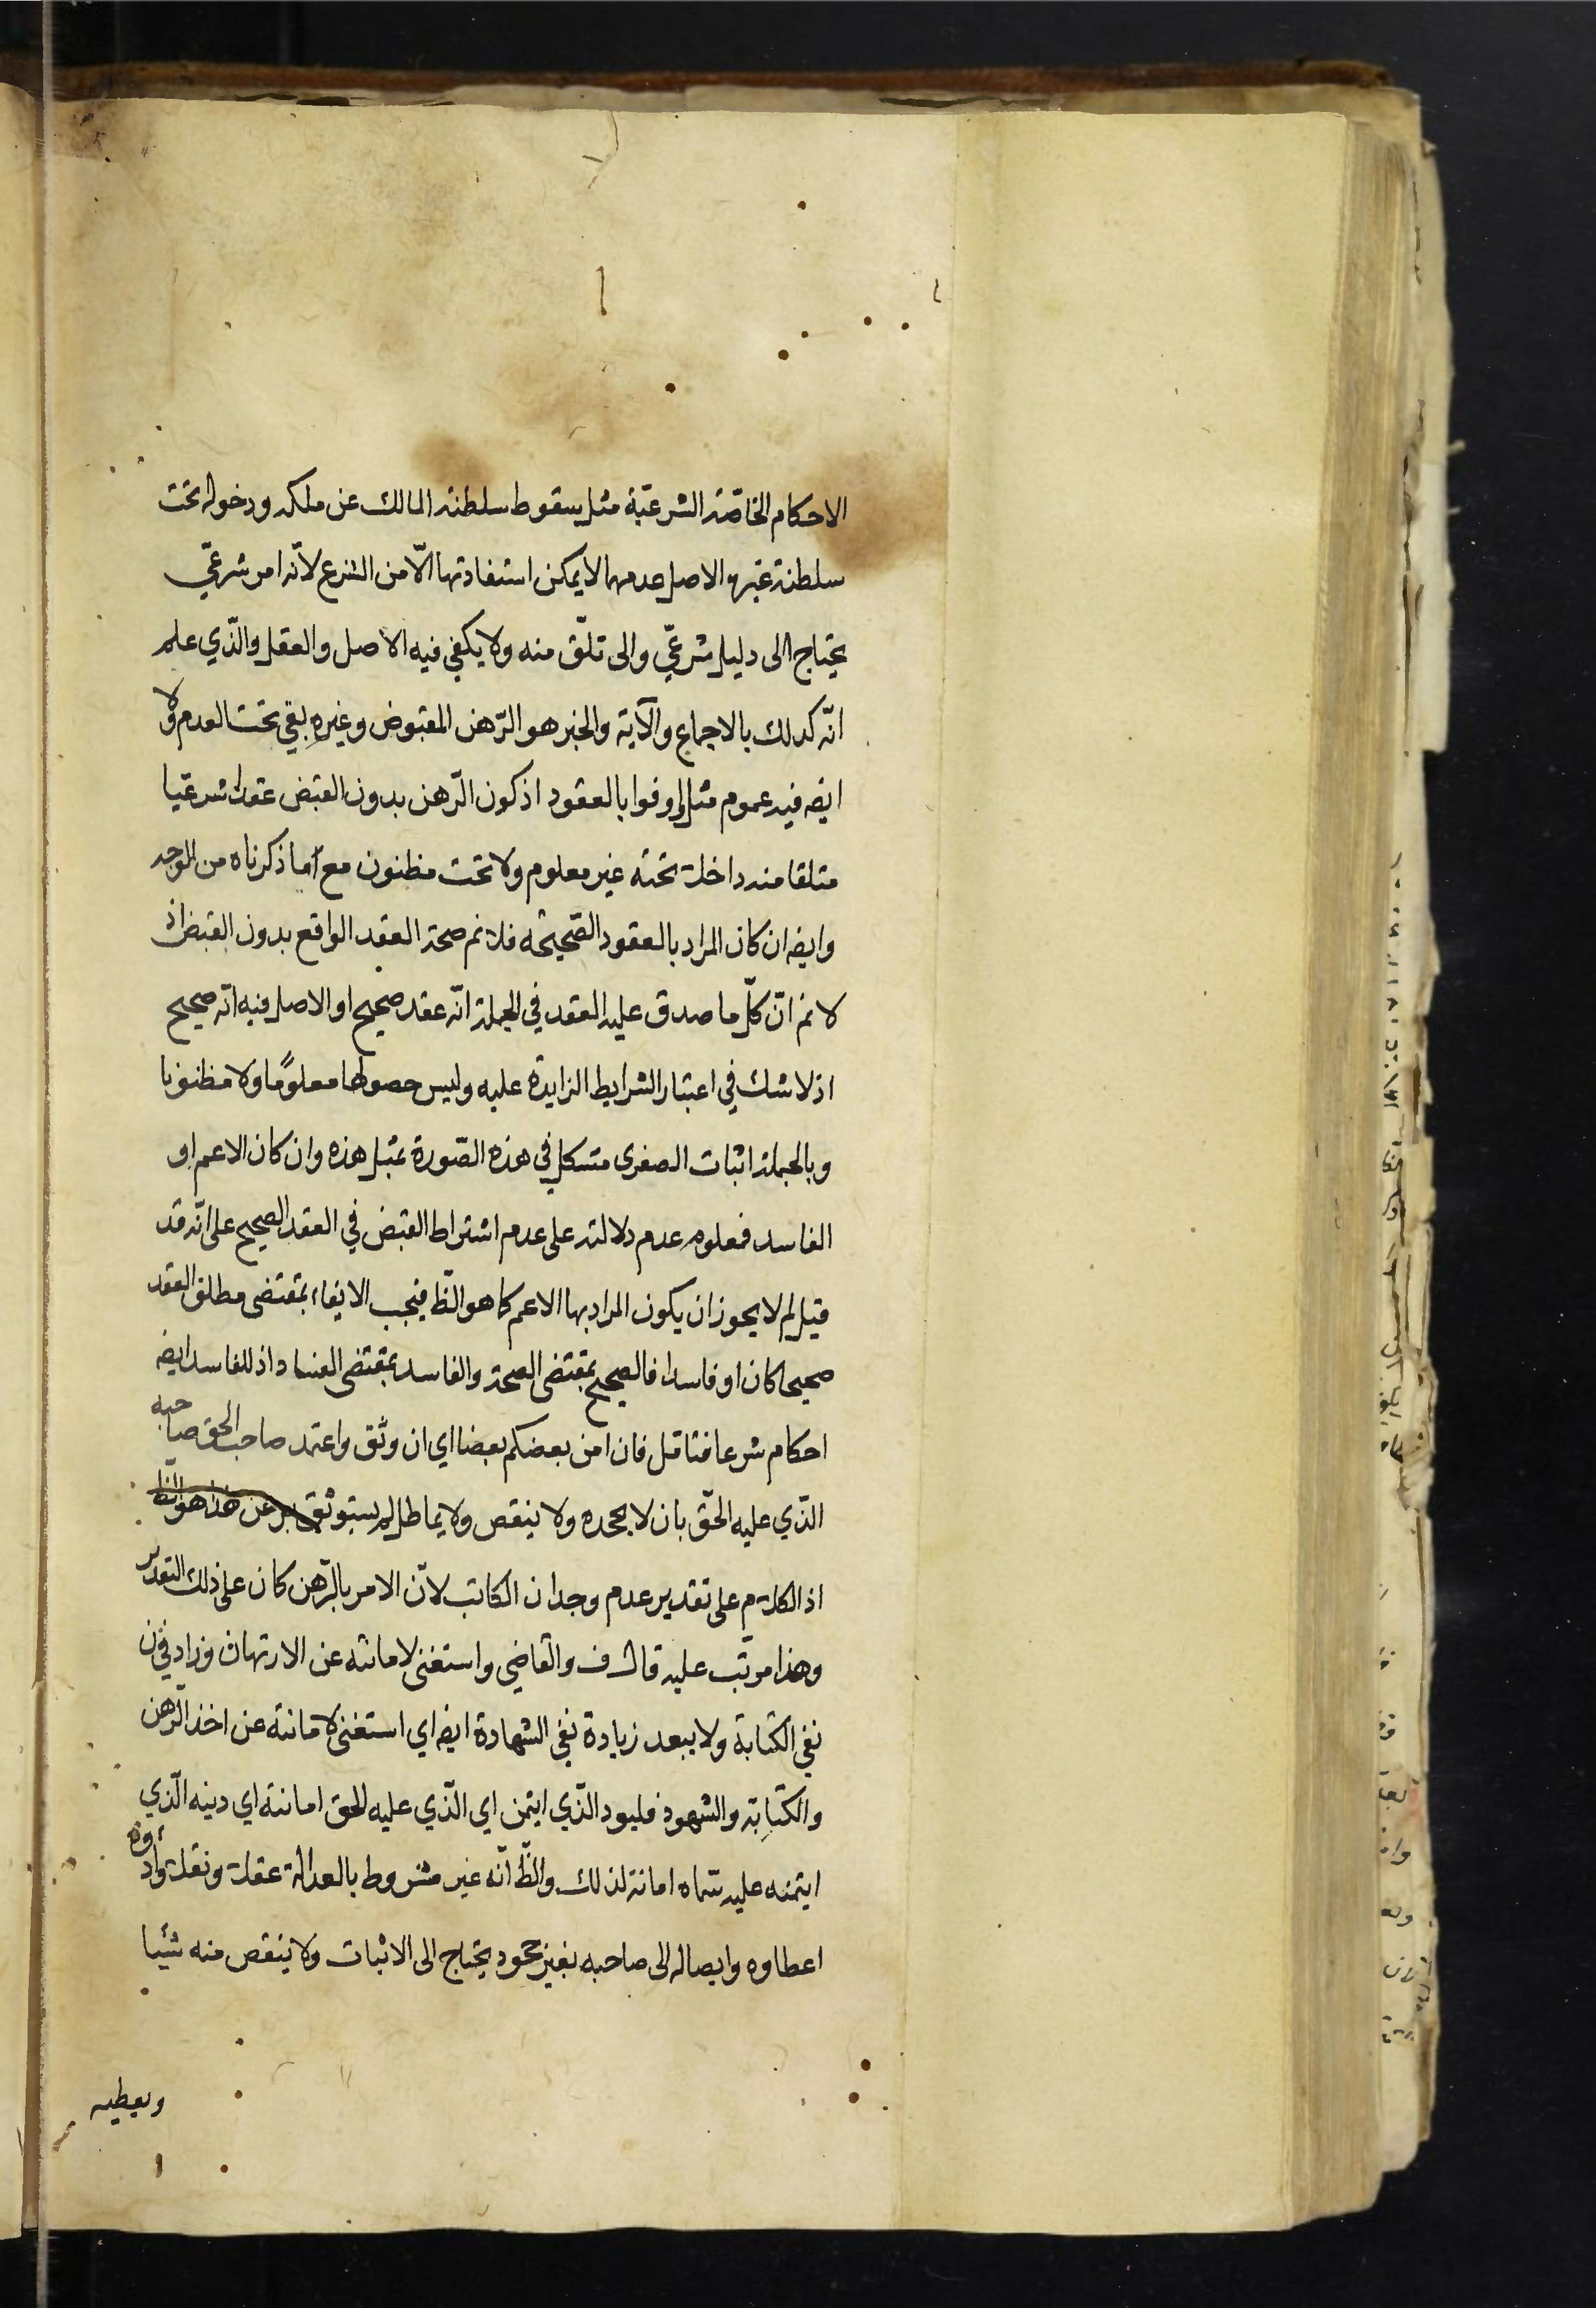 الاحكام الخاصّة الشرعيّة مثل سقوط سلطنة المالك عن ملكه ودخوله تحت
سلطنة غيره الاصل عدمها لا يمكن استفادتها الّا من الشرع لانّه امر شرعيّ
يحتاج الى دليل شرعيّ والى تلقّ منه ولا يكفي فيه الاصل والعقل والّذي علم
انّه كذلك بالاجماع والآية والخبر هو الرّهن المقبوض وغيره بقي تحت العدم ولا
ايضه فيه عموم مثل اوفوا بالعقود اذ كون الرّهن بدون القبض عقدا شرعيّا
متلقا منه داخلة تحته غير معلوم ولا تحت مظنون مع ما ذكرناه من الوجه
وايضه ان كان المراد بالعقود الصّحيحة فلا نم صحة العقد الواقع بدون القبض اذ
لا نم انّ كلّ ما صدق عليه العقد في الجملة انّه عقد صحيح او الاصل فيه انّه صحيح
اذ لا شك في اعتبار الشرايط الزايدة عليه وليس حصولها معلومًا ولا مظنونا
وبالجملة اثبات الصغرى مشكل في هذه الصّورة بمثل هذه وان كان الاعم او
الفاسد فمعلوم عدم دلالته على عدم اشتراط القبض في العقد الصحيح على انّه قد
قيل لم لا يجوز ان يكون المراد بها الاعم كما هو الظّ فيجب الايفاء بمقتضى مطلق العقد
صحيحا كان او فاسدا فالصحيح بمقتضى الصحة والفاسد بمقتضى الفساد اذ للفاسد ايضه
احكام شرعا فتأمل فان امن بعضكم بعضا اي ان وثق واعتمد صاحب الحق صاحبه
الّذي عليه الحقّ بان لا يجحده ولا ينقص ولا يماطل لم يستوثق هذا هو الظ
اذ الكلام على تقدير عدم وجدان الكاتب لانّ الامر بالرّهن كان على ذلك التقدير
وهذا مرتّب عليه قال ف والقاضي واستغنى لامانته عن الارتهان وزاد في ن
نفي الكتابة ولا يبعد زيادة نفي الشهادة ايضه اي استغنى لامانته عن اخذ الرّهن
والكتابة والشهود فليود الّذي ايتمن اي الّذي عليه الحق امانته اي دينه الّذي
ايتمنه عليه سماه امانة لذلك والظّ انّه غير مشروط بالعدالة عقلا ونقلا واداؤه
اعطاوه وايصاله الى صاحبه بغير جحود يحتاج الى الاثبات ولا ينقص منه شيئا
ويعطيه